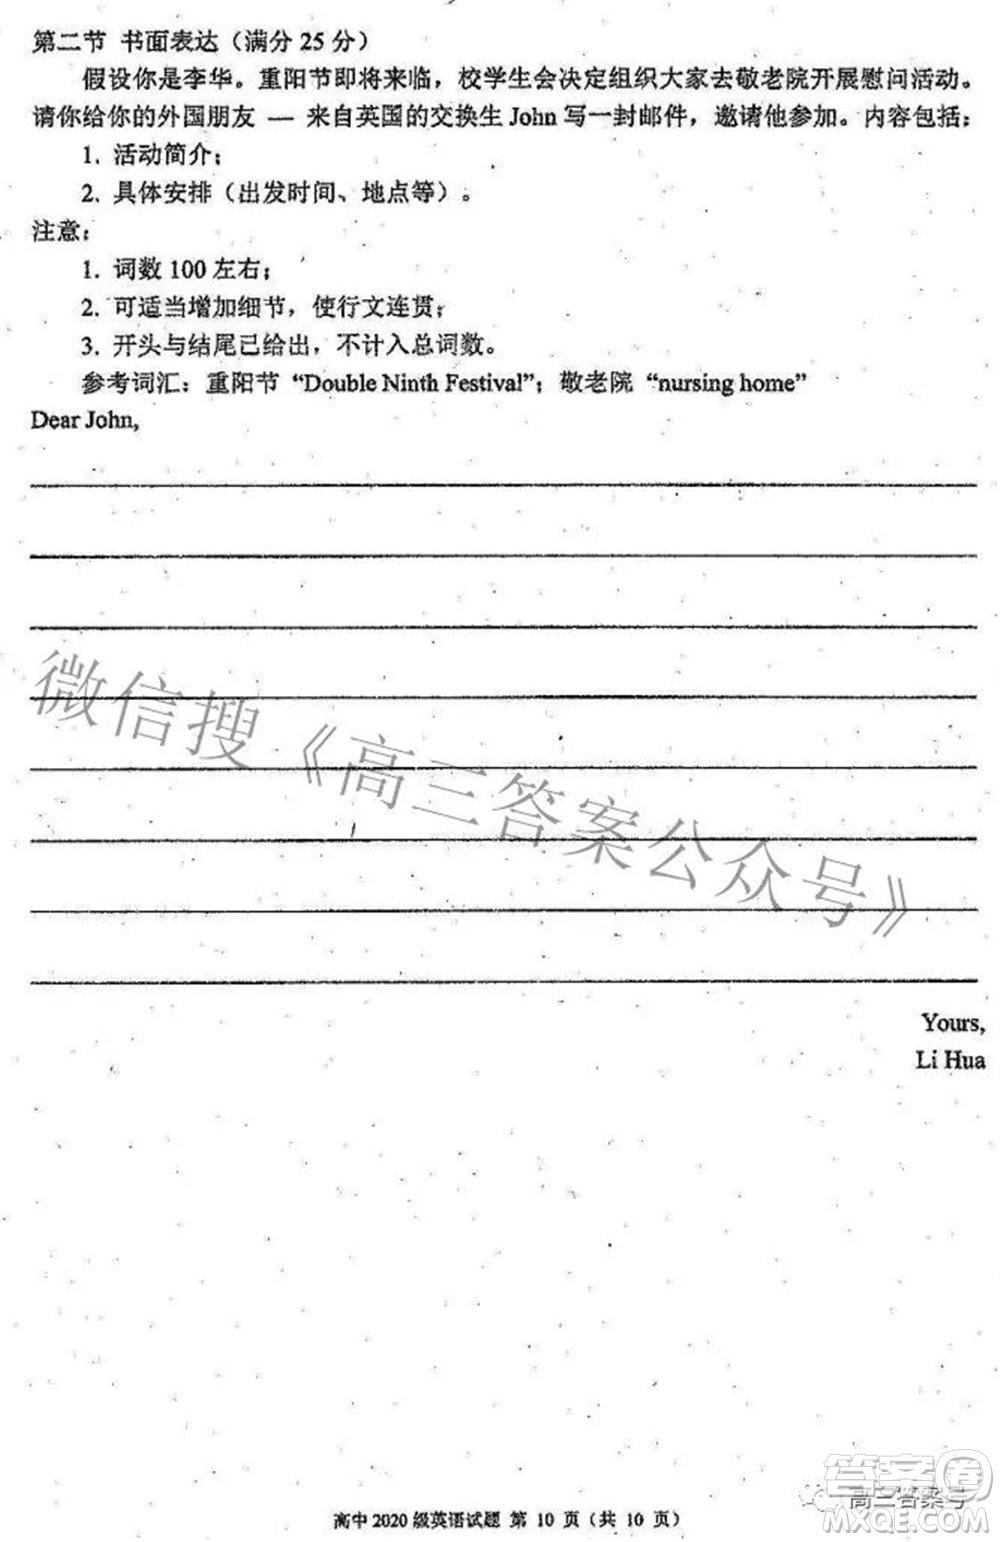 第二节 书面表达（满分 25 分）
假设你是李华。重阳节即将来临，校学生会决定组织大家去敬老院开展慰问活动。
请你给你的外国朋友 — 来自英国的交换生 John 写一封邮件，邀请他参加。内容包括：
1. 活动简介；
2. 具体安排（出发时间、地点等）。
注意：
1. 词数 100 左右；
2. 可适当增加细节，使行文连贯；
3. 开头与结尾已给出，不计入总词数。
参考词汇：重阳节 “Double Ninth Festival”；敬老院 “nursing home”
Dear John,
微信搜《高三答案公众号》
Yours,
Li Hua
答案卷
高三答案号
MXQE.COM
高中 2020 级英语试题 第 10 页（共 10 页）